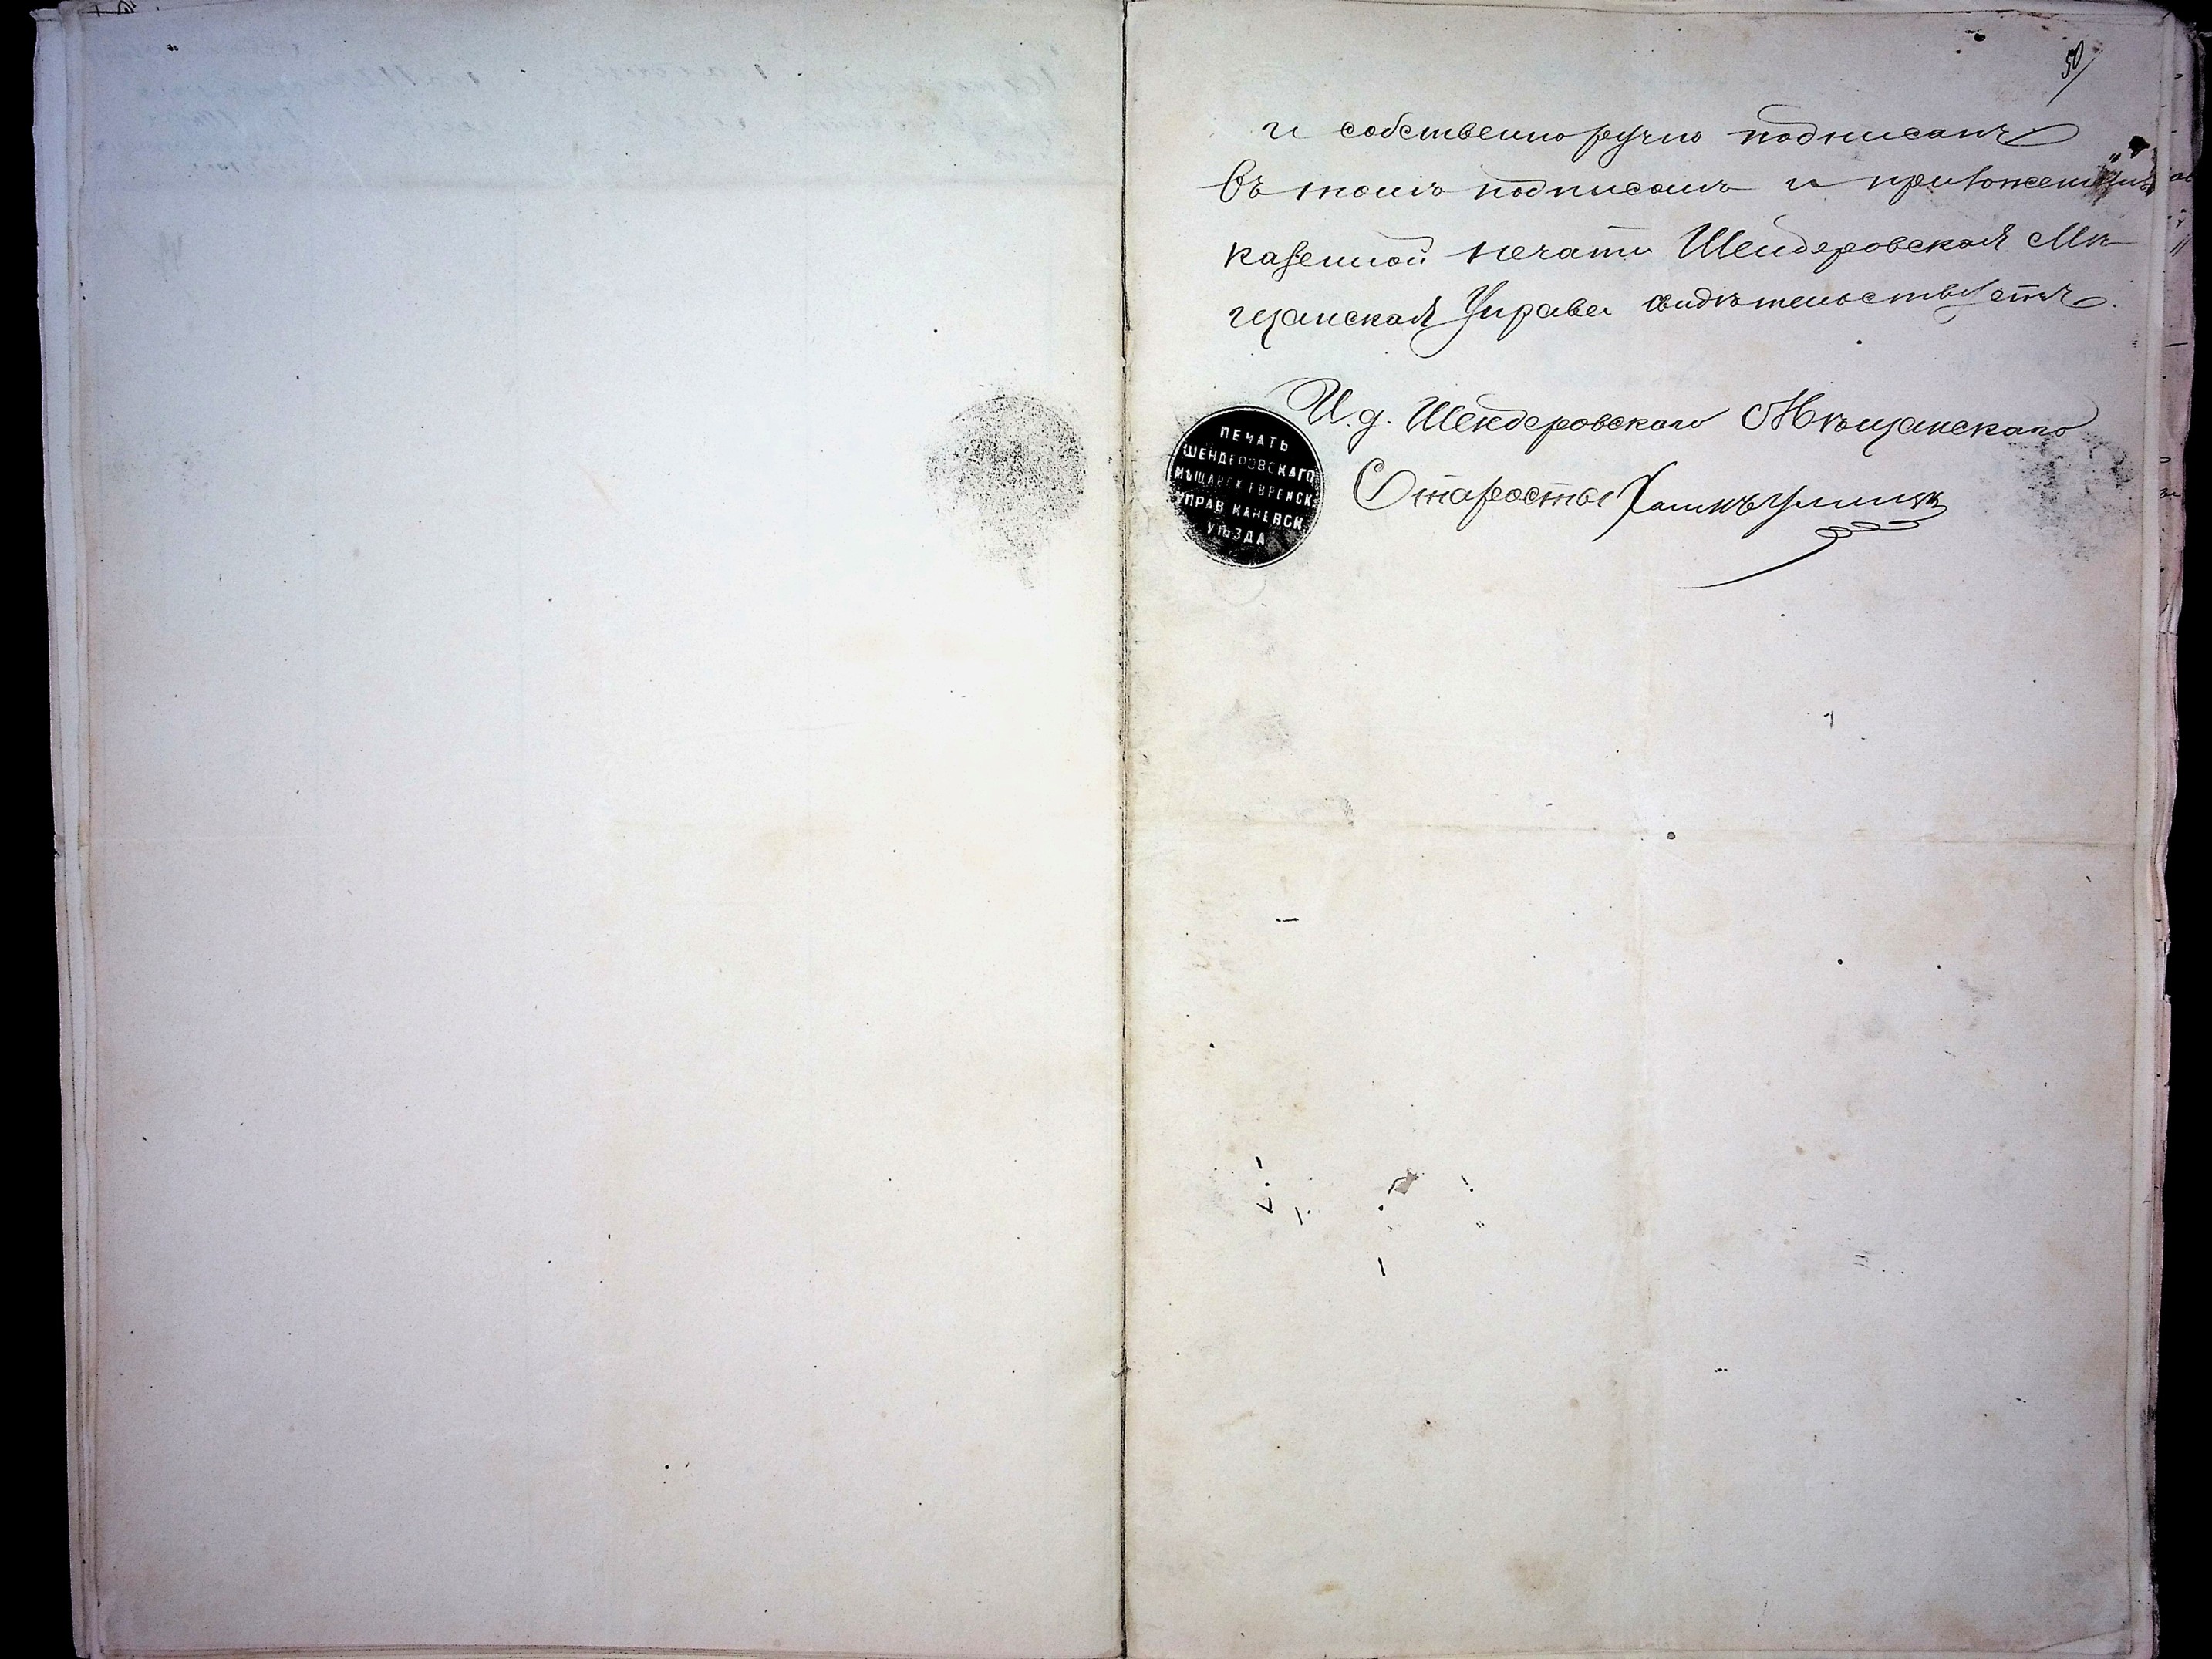 50
и собственно ручно подписанъ
въ томъ подписомъ и приложеніемъ
казенной печати Шендеровская Мѣ
щанская Управа свидѣтельствуетъ.
И. д. Шендеровскаго Мѣщанскаго
Старосты
ПЕЧАТЬ
ШЕНДЕРОВСКАГО
МѢЩАНСК ЕВРЕЙСК
УПРАВ КАНЕВСК
УѢЗДА